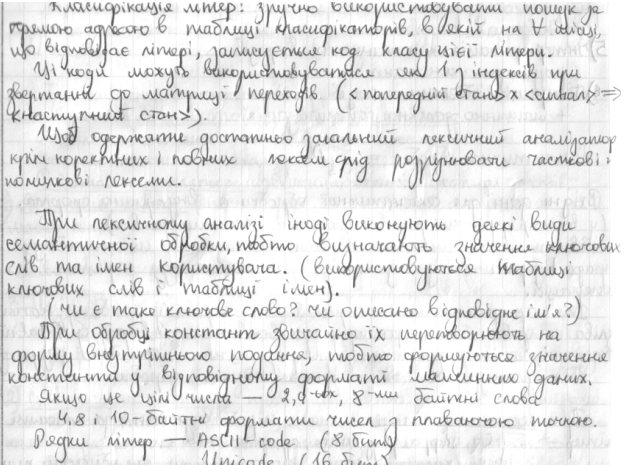 Класифікація літер: зручно використовувати пошук за
прямою адресою в таблиці класифікаторів, в якій на ∀ місці,
що відповідає літері, записується код класу цієї літери.
Ці коди можуть використовуватися як 1 з індексів при
звертанні до матриці переходів (<попередній стан> x <сигнал> ⇒
<наступний стан>).
Щоб одержати достатньо загальний лексичний аналізатор
крім коректних і повних лексем слід розрізнювати часткові і
помилкові лексеми.
При лексичному аналізі іноді виконують деякі види
семантичної обробки, тобто визначають значення ключових
слів та імен користувача. (використовуються таблиці
ключових слів і таблиці імен).
(чи є таке ключове слово? чи описано відповідне ім'я?)
При обробці констант звичайно їх перетворюють на
форму внутрішнього подання, тобто формуються значення
константи у відповідному форматі машинних даних.
Якщо це цілі числа — 2, 4-ьох, 8-ми байтні слова
4, 8 і 10-байтні формати чисел з плаваючою точкою.
Рядки літер — ASCII-code (8 біт)
Unicode (16 біт)